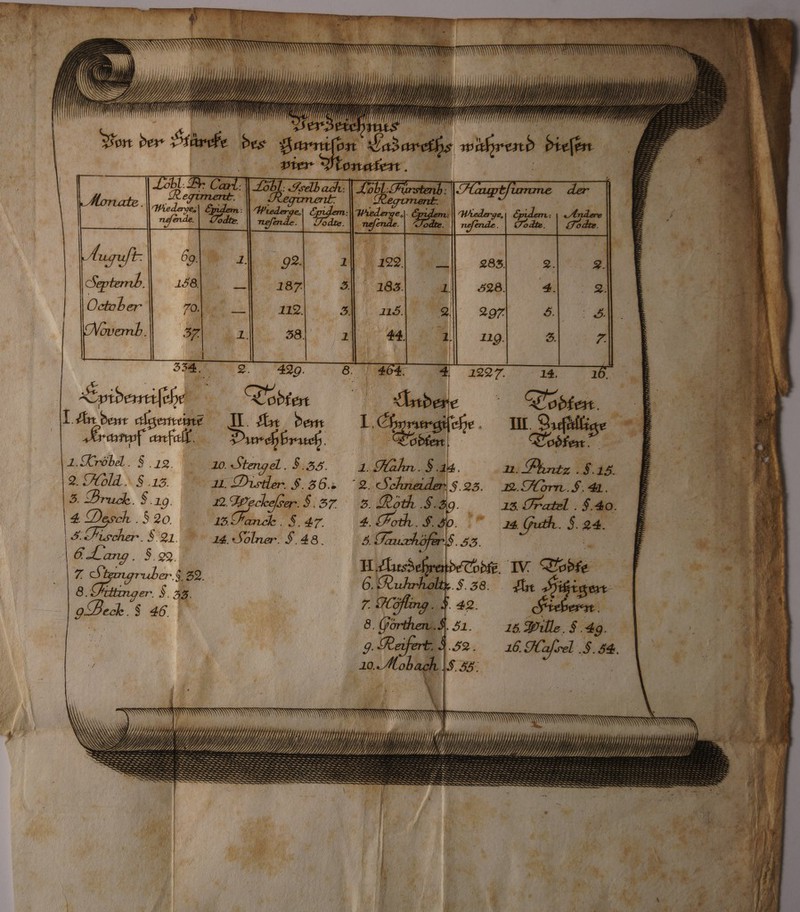 Verzeichnus
Von der Stärcke des Garnison Lazareths während diesen
vier Monaten.
Monate. Löbl: Pr. Carl: Regiment. Löbl: Iselbach: Regiment: Löbl. Fürstenb: Regiment: Hauptsumme der
Wiederge, nesende. Epidem: Todte. Wiederge, nesende. Epidem: Todte. Wiederge, nesende. Epidem: Todte. Wiederge, nesende. Epidem: Todte. Andere Todte.
August: 69. 1. 92. 1 122. — 283. 2. 2.
Septemb. 158. — 187. 3. 183. 1. 528. 4. 2.
October 70. — 112. 3. 115. 2. 297. 5. 5.
Novemb. 37. 1. 38. 1 44. 1. 119. 3. 7.
334. 2. 429. 8. 464. 4 1227. 14. 16.
Epidemische Todten
I. An dem allgemeine Krampf anfall.
1. Kröbel. §. 12.
2. Hold. §. 13.
3. Bruck. §. 19.
4. Desch. § 20.
5. Fischer. §. 21.
6. Lang. §. 22.
7. Steingruber. §. 32.
8. Fittinger. §. 33.
9. Beck. § 46.
II. An dem Durchbruch.
10. Stengel. §. 35.
11. Distler. §. 36.
12. Weckesser. §. 37.
13. Fanck. §. 47.
14. Solner. §. 48.
Andere Todten.
I. Chyrurgische. Todten.
1. Hahn. §. 14.
2. Schneider §. 23.
3. Roth. §. 39.
4. Foth. §. 50.
5. Tauxhöfer §. 53.
II. Auszehrende Todte.
6. Ruhrholtz. §. 38.
7. Höfling. §. 42.
8. Görthen. §. 51.
9. Reifert. §. 52.
10. Mobach. §. 55.
III. Zufällige Todten.
11. Phntz. §. 15.
12. Horn. §. 41.
13. Fratel. §. 40.
14. Guth. §. 24.
IV. Todte An Hitzigen Fiebern.
15. Wille. §. 49.
16. Hassel. §. 54.